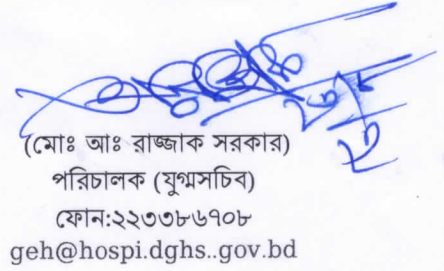 (মোঃ আঃ রাজ্জাক সরকার)
পরিচালক (যুগ্মসচিব)
ফোন:২২৩৩৮৬৭০৮
geh@hospi.dghs..gov.bd